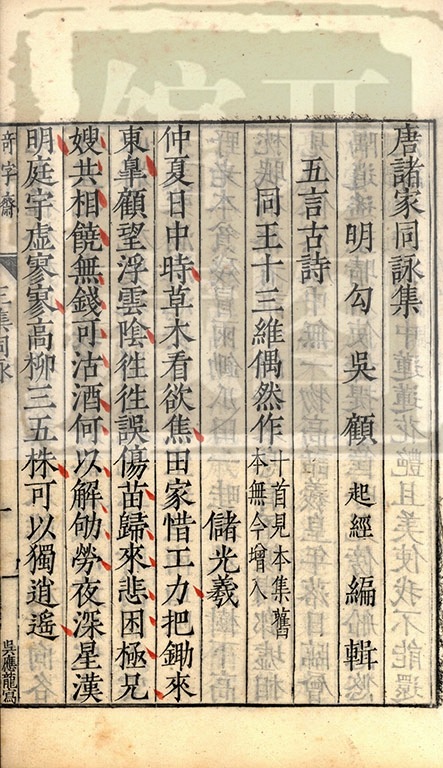 唐諸家同詠集
明勾吳顧起經編輯
五言古詩
同王十三維偶然作十首見本集舊本無今增入
儲光羲
仲夏日中時草木看欲焦田家惜工力把鋤來
東皐顧望浮雲陰徃徃誤傷苗歸來悲困極兄
嫂共相饒無錢可沽酒何以解劬勞夜深星漢
明庭宇虛寥寥高柳三五株可以獨逍遙
奇字齋
吳應龍寫